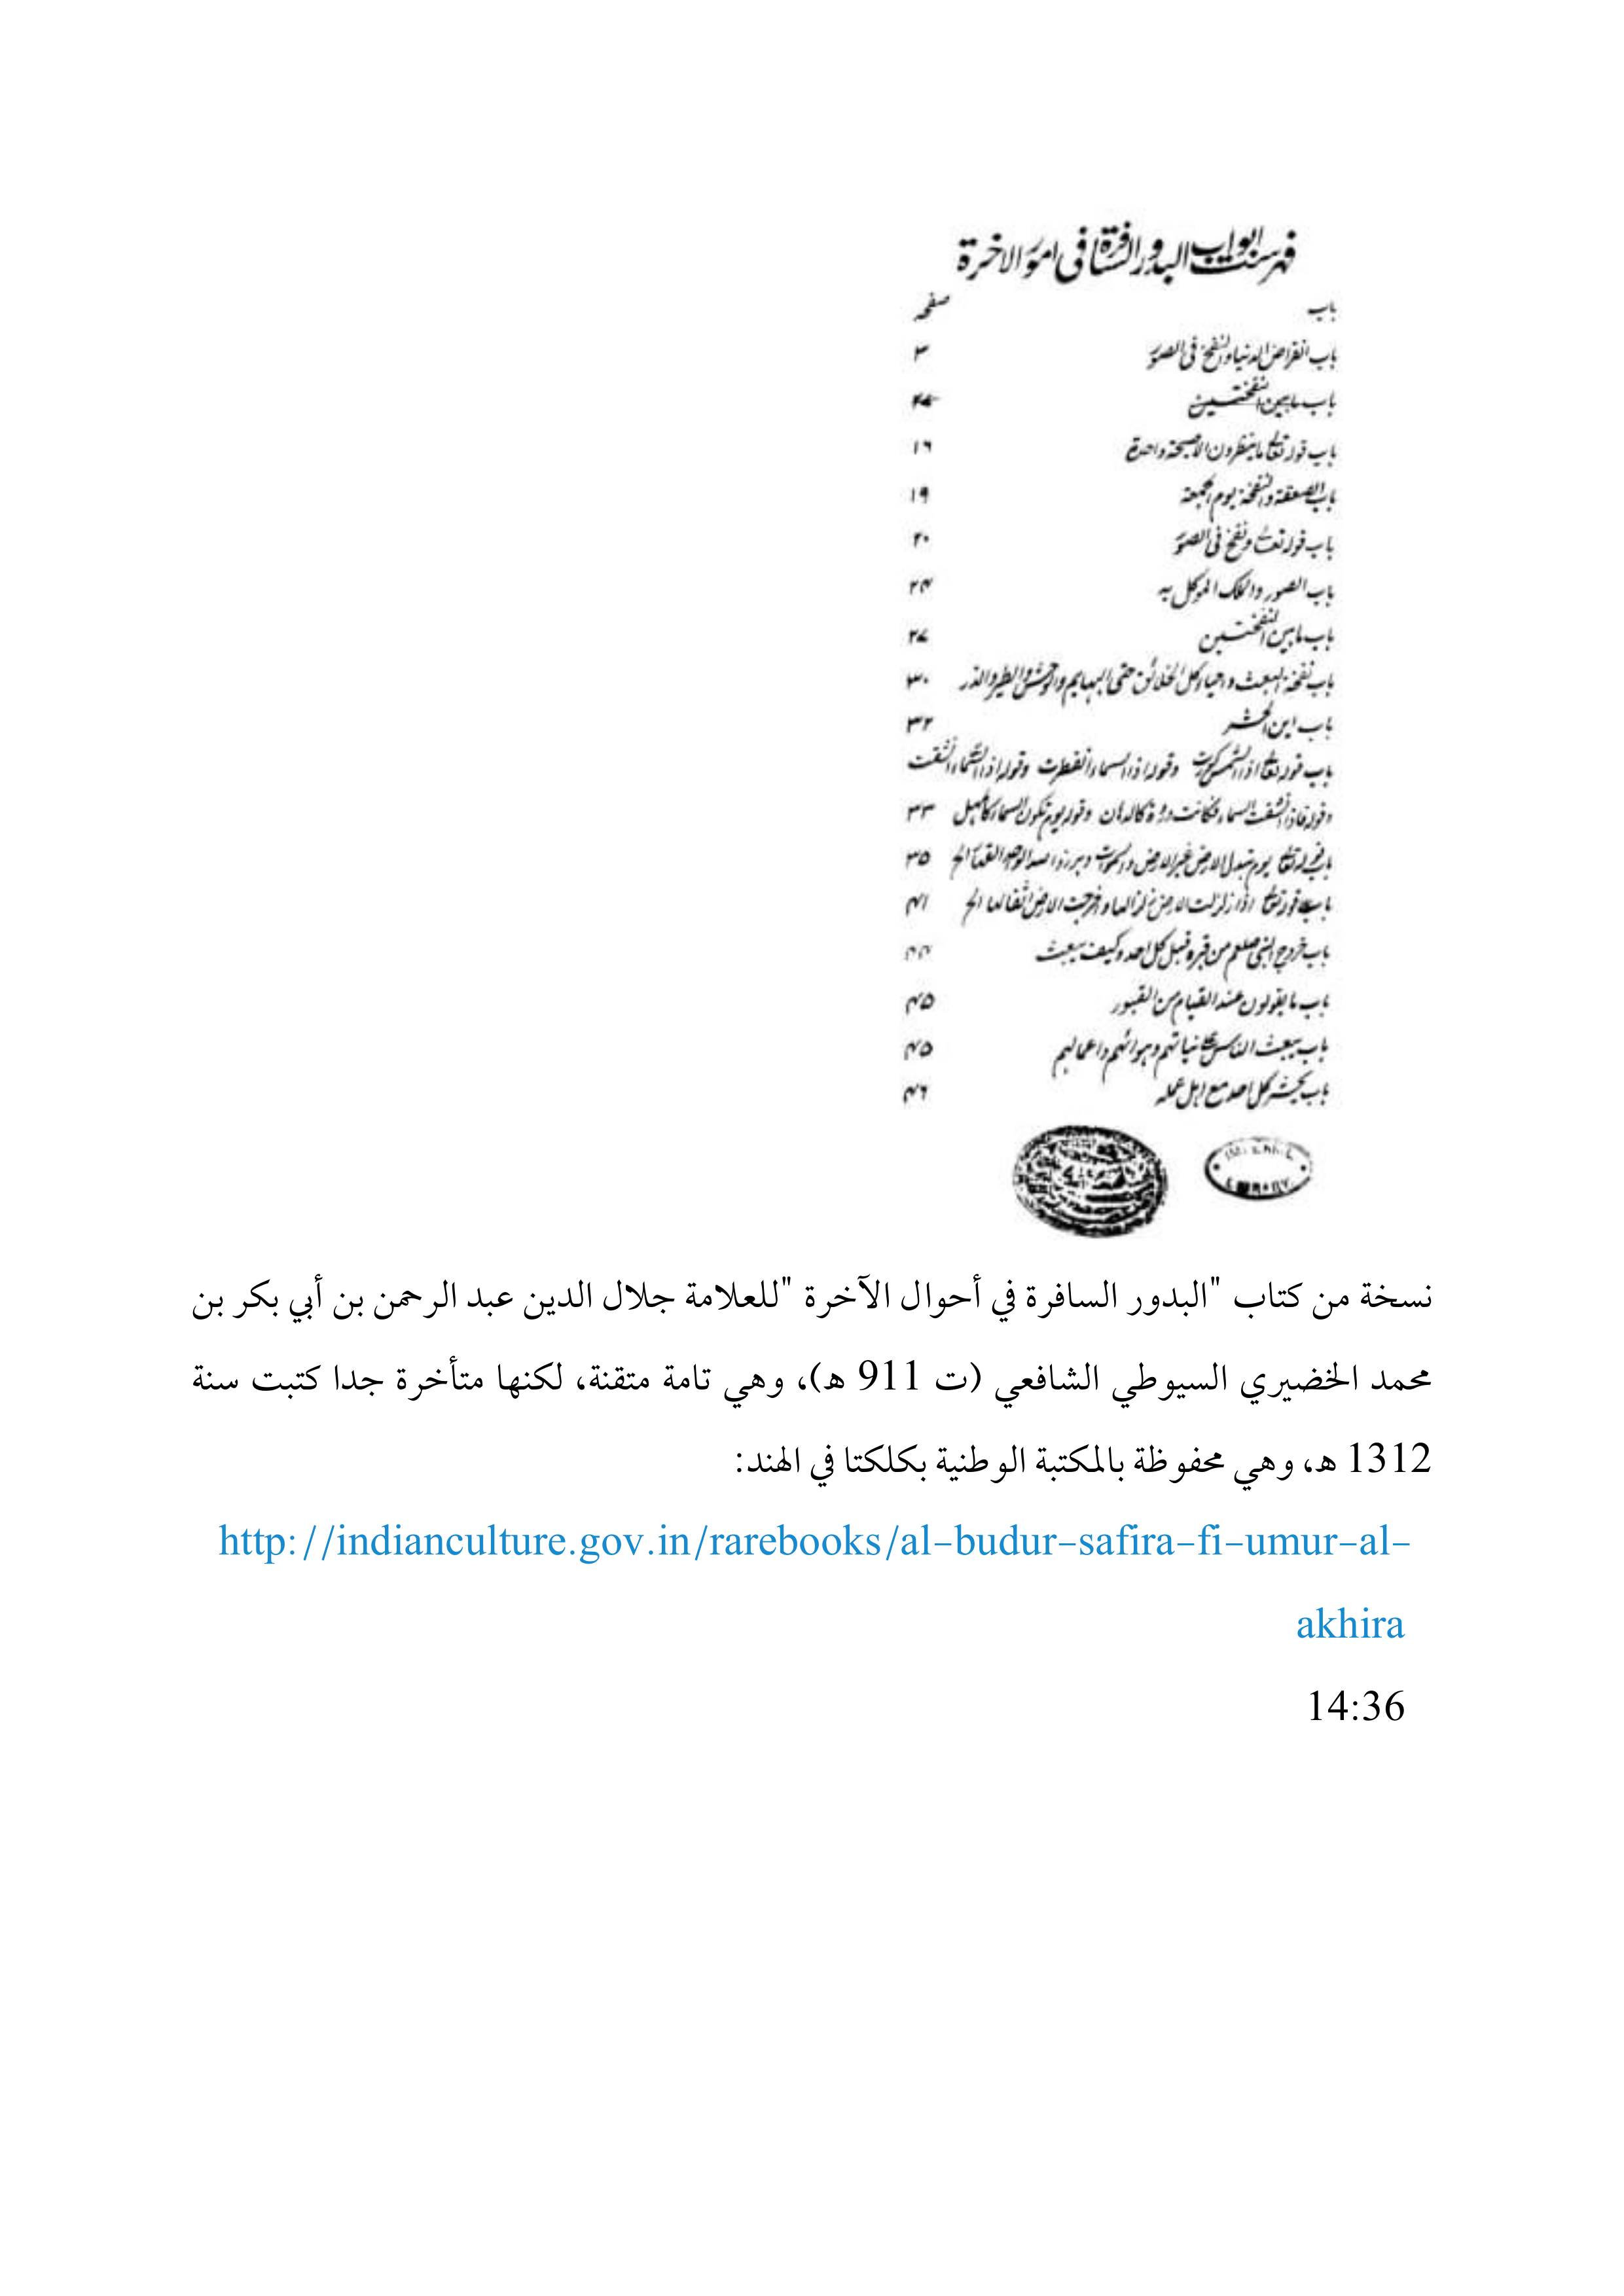 فهرست ابواب البدور السافرة فى امور الاخرة
باب صفحہ
باب انقراض الدنيا والنفخ فى الصور ۳
باب ما بين النفختين
باب قوله تعالى ما ينظرون الا صيحة واحدة ۱۶
باب الصعقة والنفخة يوم الجمعة ۱۹
باب قوله تعالى ونفخ فى الصور ۲۰
باب الصور والملك الموكل به ۲۴
باب ما بين النفختين ۲۷
باب نفخة البعث واحياء كل الخلائق حتى البهايم والوحش والطير والذر ۳۰
باب اين المحشر ۳۲
باب قوله تعالى اذا الشمس كورت وقوله اذا السماء انفطرت وقوله اذا السماء انشقت
وقوله فاذا انشقت السماء فكانت وردة كالدهان وقوله يوم تكون السماء كالمهل ۳۳
باب قوله تعالى يوم تبدل الارض غير الارض والسموات وبرزوا لله الواحد القهار الخ ۳۵
باب قوله تعالى اذا زلزلت الارض زلزالها واخرجت الارض اثقالها الخ ۴۱
باب خروج النبى صلعم من قبره قبل كل احد وكيف يبعث ۴۴
باب ما يقولون عند القيام من القبور ۴۵
باب يبعث الناس على نياتهم وهوائهم واعمالهم ۴۵
باب يحشر كل احد مع اهل عمله ۴۶
نسخة من كتاب "البدور السافرة في أحوال الآخرة "للعلامة جلال الدين عبد الرحمن بن أبي بكر بن
محمد الخضيري السيوطي الشافعي (ت 911 هـ)، وهي تامة متقنة، لكنها متأخرة جدا كتبت سنة
1312 هـ، وهي محفوظة بالمكتبة الوطنية بكلكتا في الهند:
http://indianculture.gov.in/rarebooks/al-budur-safira-fi-umur-al-
akhira
14:36